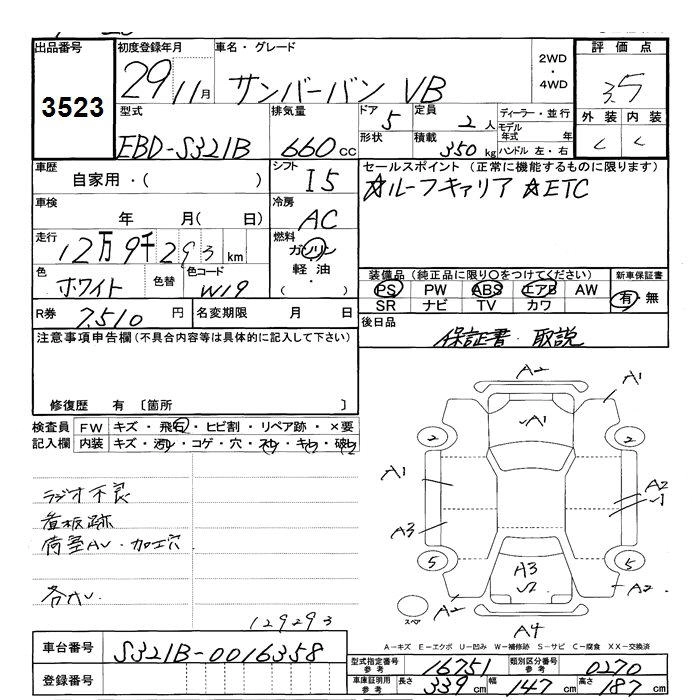 出品番号 初度登録年月 車名・グレード 2WD・4WD 評価点
3523 29 11月 サンバーバン VB 3.5
型式 排気量 ドア 5 定員 2人 ディーラー・並行 外装 内装
EBD-S321B 660cc 形状 積載 350kg モデル年式 年 ハンドル 左・右 C C
車歴 自家用・( ) シフト I5 セールスポイント (正常に機能するものに限ります)
☆ルーフキャリア ☆ETC
車検 年 月( 日) 冷房 AC
走行 12万9千293km 燃料 ガソリン 軽油 ( ・ )
色 ホワイト 色替 色コード W19
装備品 (純正品に限り○をつけてください) 新車保証書
PS PW ABS エアB AW 有・無
SR ナビ TV カワ
R券 7,510円 名変期限 月 日
後日品 保証書・取説
注意事項申告欄(不具合内容等は具体的に記入して下さい)
修復歴 有 〔箇所 〕
検査員記入欄 FW キズ・飛石・ヒビ割・リペア跡・×要
内装 キズ・汚レ・コゲ・穴・スレ・キレ・破レ
ラジオ不良
看板跡
荷室AU・加工穴
各小U
129293
A2
A1
A1
2
2
A1
A2
A3
5
5
A3
A2
A2
スペア
A4
A-キズ E-エクボ U-凹み W-補修跡 S-サビ C-腐食 XX-交換済
車台番号 S321B-0016358
登録番号
型式指定番号 参考 16751 類別区分番号 参考 0270
車庫証明用 参考 長さ 339cm 幅 147cm 高さ 187cm